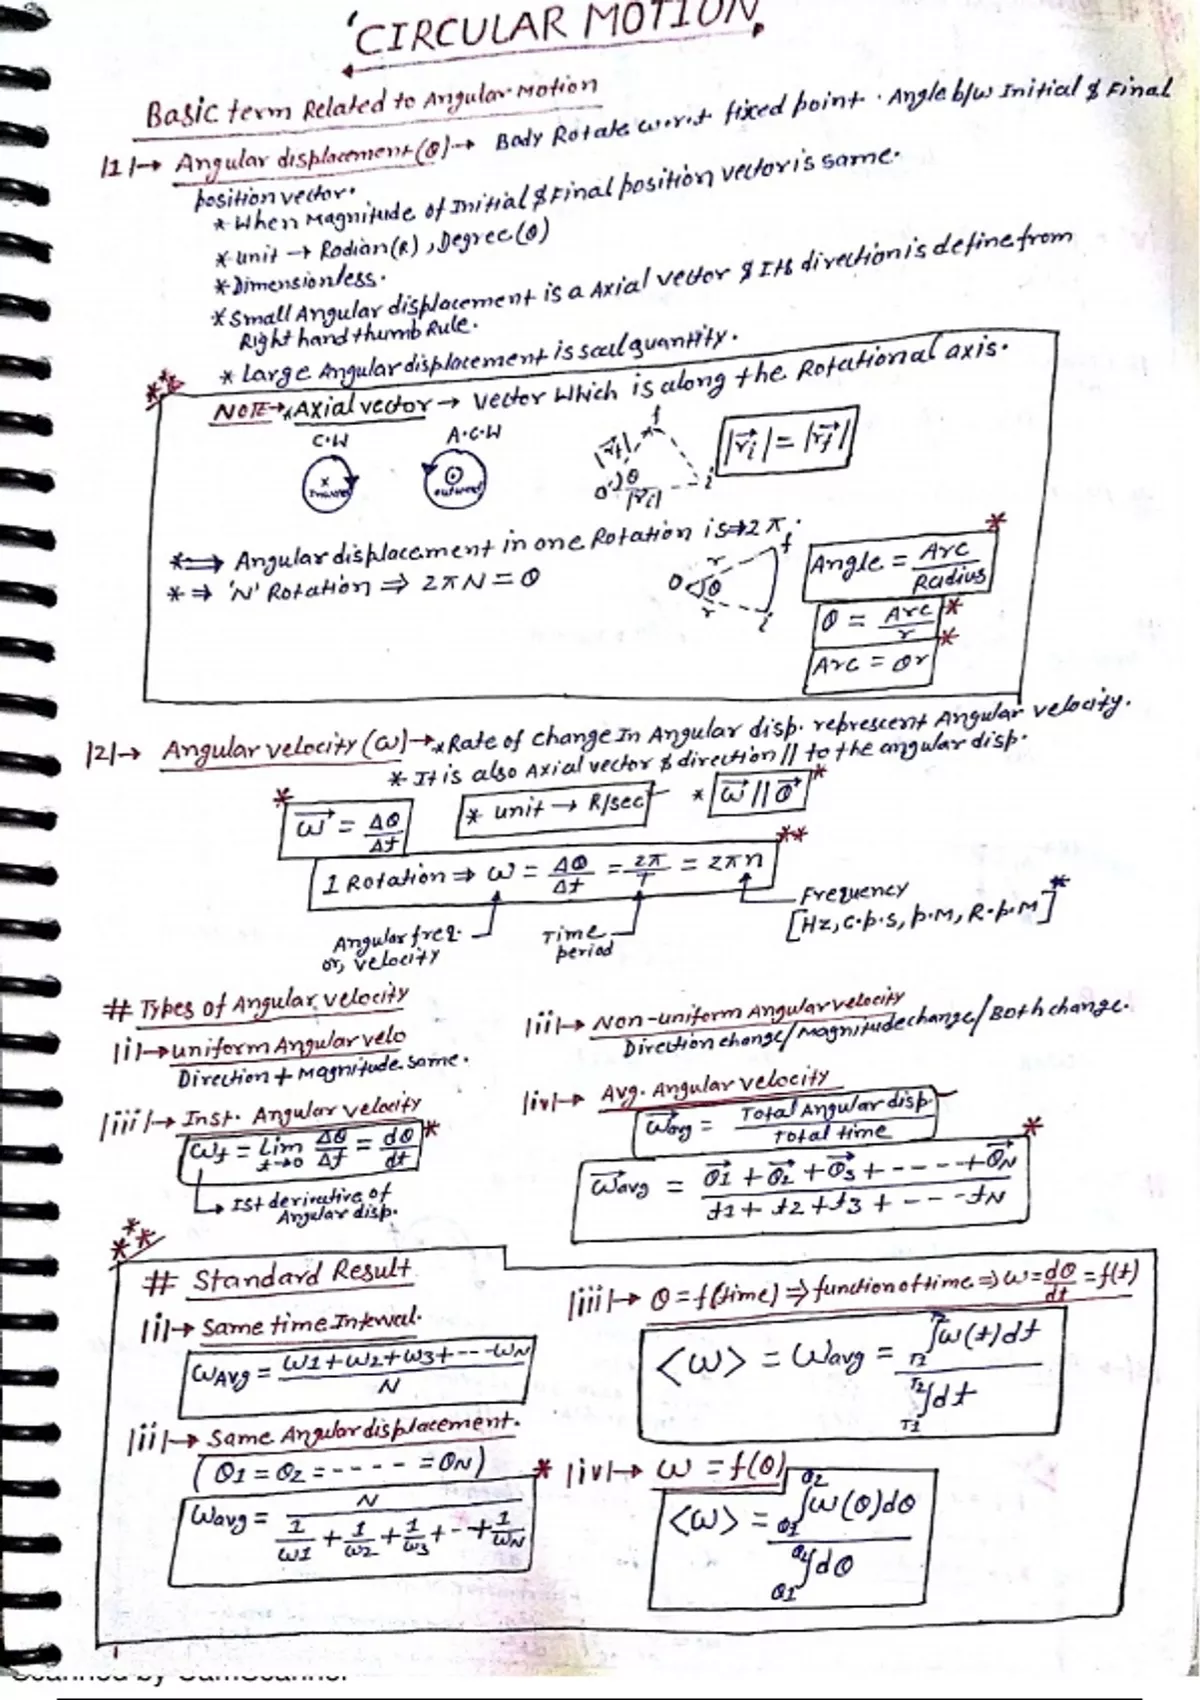 'CIRCULAR MOTION
Basic term Related to Angular Motion
|1|→ Angular displacement (θ)→ Body Rotate w.r.t fixed point. Angle b/w Initial & Final
position vector.
* When Magnitude of Initial & Final position vector is same.
* unit → Radian(R), Degree(θ)
* Dimensionless.
* Small Angular displacement is a Axial vector & Its direction is define from
Right hand thumb Rule.
* Large Angular displacement is scal quantity.
NOTE→ * Axial vector → vector Which is along the Rotational axis.
C.W A.C.W
x
Inward
outward
|r⃗f| f θ O |r⃗i| i
|r⃗i| = |r⃗f|
*⇒ Angular displacement in one Rotation is ⇒ 2π.
*⇒ 'N' Rotation ⇒ 2πN = θ
O r f θ r i
Angle = Arc / Radius *
θ = Arc / r *
Arc = θr *
|2|→ Angular velocity (ω)→ * Rate of change In Angular disp. represcent Angular velocity.
* It is also Axial vector & direction // to the angular disp.
* ω⃗ = Δθ / Δt
* unit → R/sec
* ω⃗ // θ⃗ *
1 Rotation ⇒ ω = Δθ / Δt = 2π / T = 2πn **
Angular freq. or, velocity
Time period
Frequency
[Hz, c.p.s, p.M, R.p.M] *
# Types of Angular velocity
|i|→ uniform Angular velo
Direction + Magnitude same.
|ii|→ Non-uniform Angular velocity
Direction change/Magnitude change/Both change.
|iii|→ Inst. Angular velocity
ωt = Lim t→0 Δθ / Δt = dθ / dt *
Ist derivative of
Angular disp.
|iv|→ Avg. Angular velocity
ω⃗avg = Total Angular disp. / Total time
ω⃗avg = θ⃗1 + θ⃗2 + θ⃗3 + ---- + θ⃗N / t1 + t2 + t3 + --- tN *
# Standard Result
|i|→ Same time Interval.
ωAvg = ω1 + ω2 + ω3 + --- ωN / N
|ii|→ Same Angular displacement.
(θ1 = θ2 = ---- = θN)
ωavg = N / 1/ω1 + 1/ω2 + 1/ω3 + -- + 1/ωN
|iii|→ θ = f(time) ⇒ function of time ⇒ ω = dθ / dt = f(t)
<ω> = ωavg = T1∫T2 ω(t)dt / T1∫T2 dt
* |iv|→ ω = f(θ)
<ω> = θ1∫θ2 ω(θ)dθ / θ1∫θ2 dθ